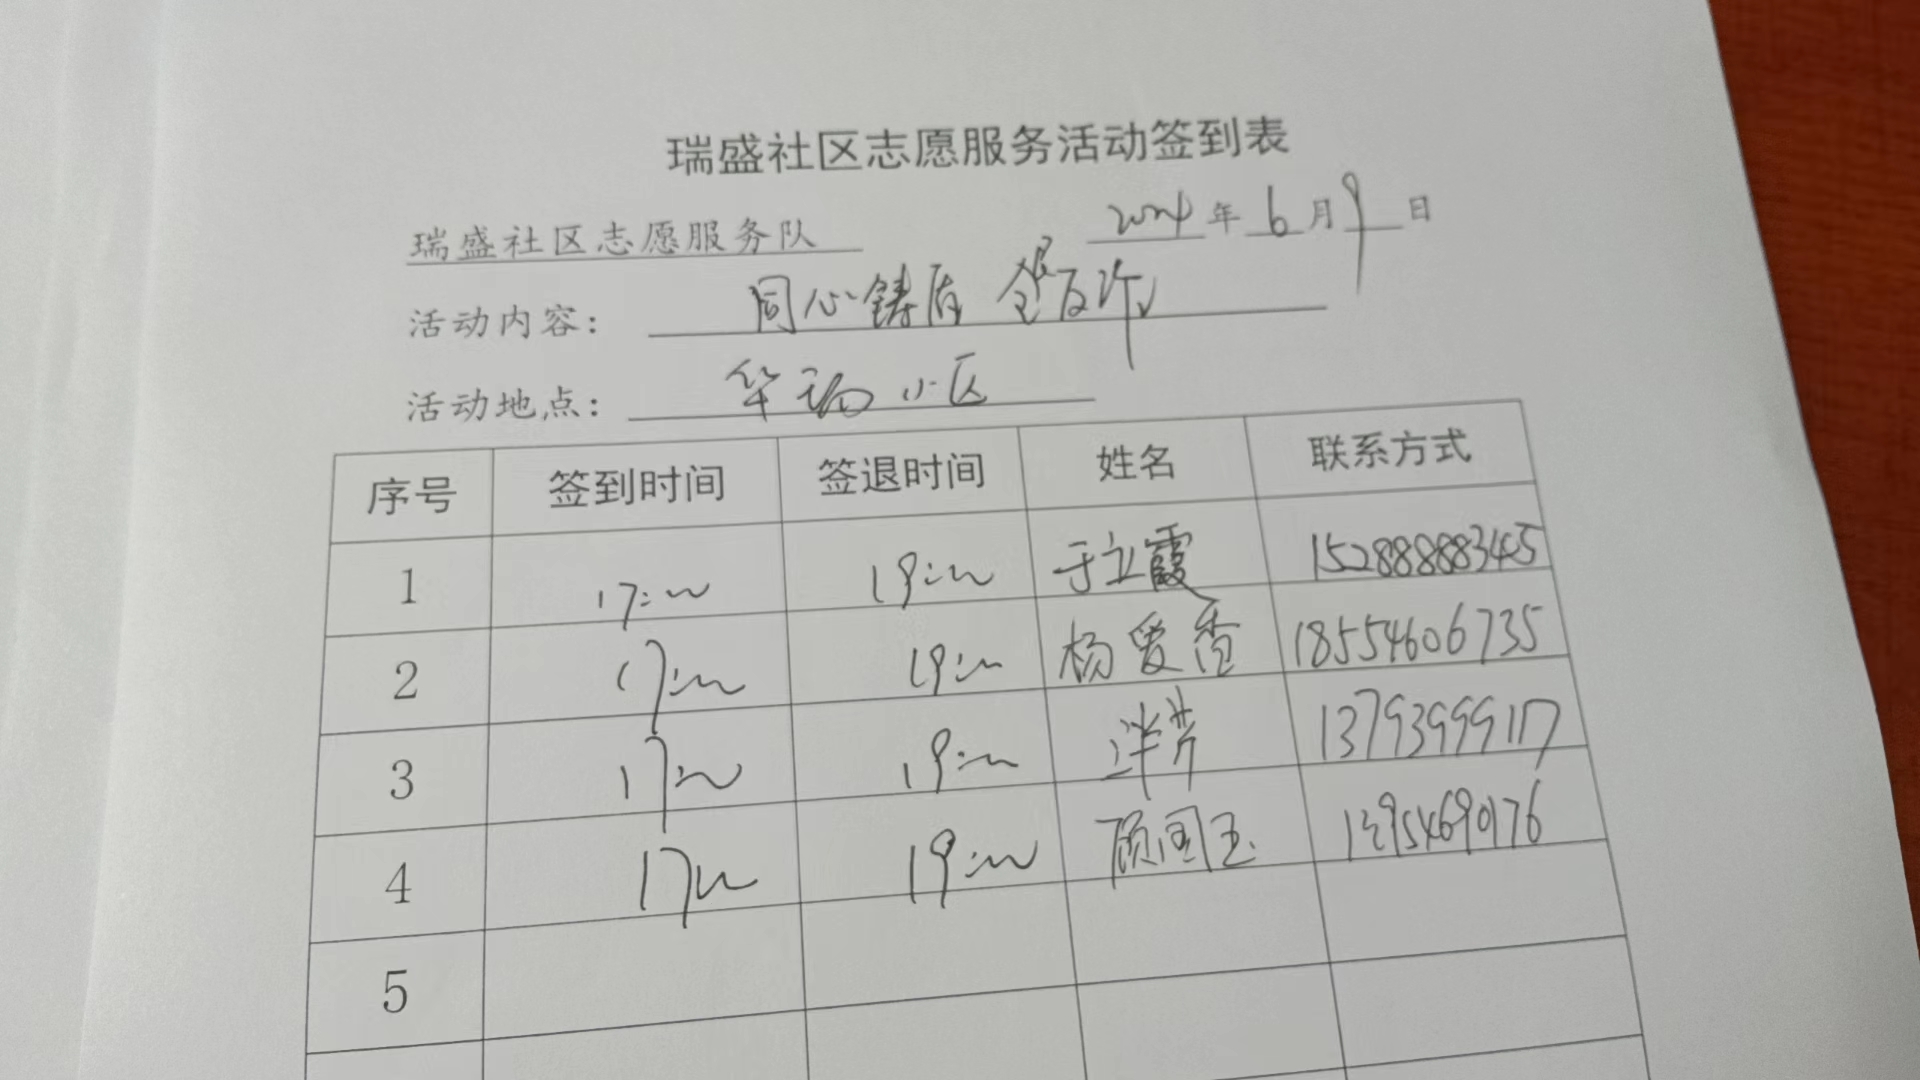 瑞盛社区志愿服务活动签到表
瑞盛社区志愿服务队 2024年6月9日
活动内容: 同心铸盾 全民反诈
活动地点: 华瑞小区
序号 签到时间 签退时间 姓名 联系方式
1 17:00 19:00 于立霞 15288888345
2 17:00 19:00 杨爱香 18554606735
3 17:00 19:00 13793999117
4 1700 19:00 顾国玉 13954690176
5